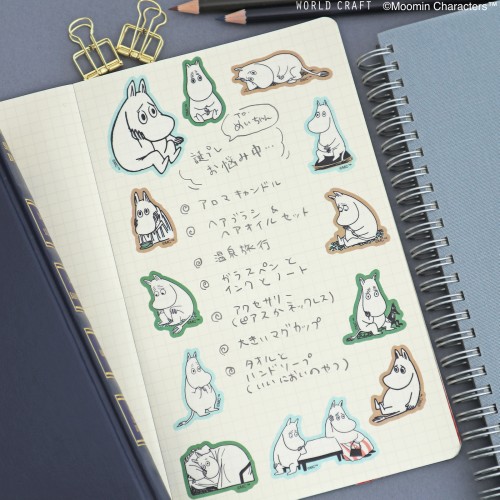 WORLD CRAFT
©Moomin Characters™
で、めいちゃん
誕プレ
お悩み中…
◎ アロマキャンドル
◎ ヘアブラシ &
ヘアオイル セット
◎ 温泉旅行
◎ ガラスペンと
インクとノート
◎ アクセサリー
(ピアスかネックレス)
◎ 大きいマグカップ
◎ タオルと
ハンドソープ
(いいにおいのやつ)